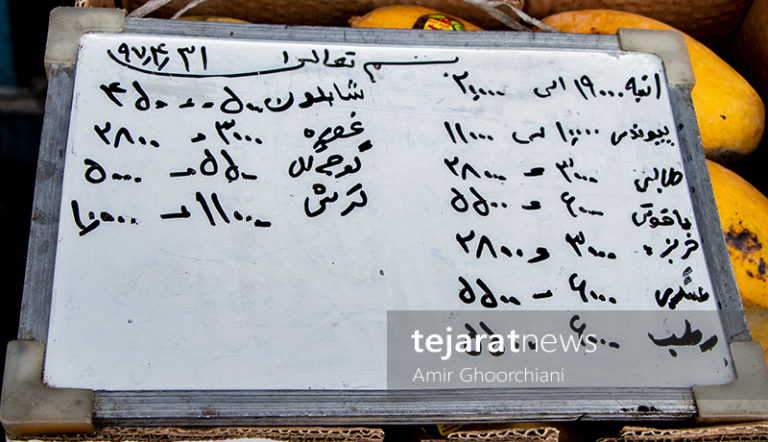 بسم تعالی ۹۷,۴,۳۱
انبه ۱۹۰۰۰ الی ۲۰,۰۰۰
پیوندی ۱۰,۰۰۰ الی ۱۱۰۰۰
طالبی ۳۰۰۰ و ۲۸۰۰
یاقوتی ۶۰۰۰ و ۵۵۰۰
خربزه ۳۰۰۰ و ۲۸۰۰
عسگری ۶۰۰۰ - ۵۵۰۰
رطب ۶۰۰۰ ۵۵۰۰
شابلون ۵۰۰۰ - ۴۵۰۰
غوره ۳۰۰۰ و ۲۸۰۰
گوجه ۵۵۰۰ - ۵۰۰۰
۱۱۰۰۰ - ۱۰,۰۰۰
tejaratnews
Amir Ghoorchiani